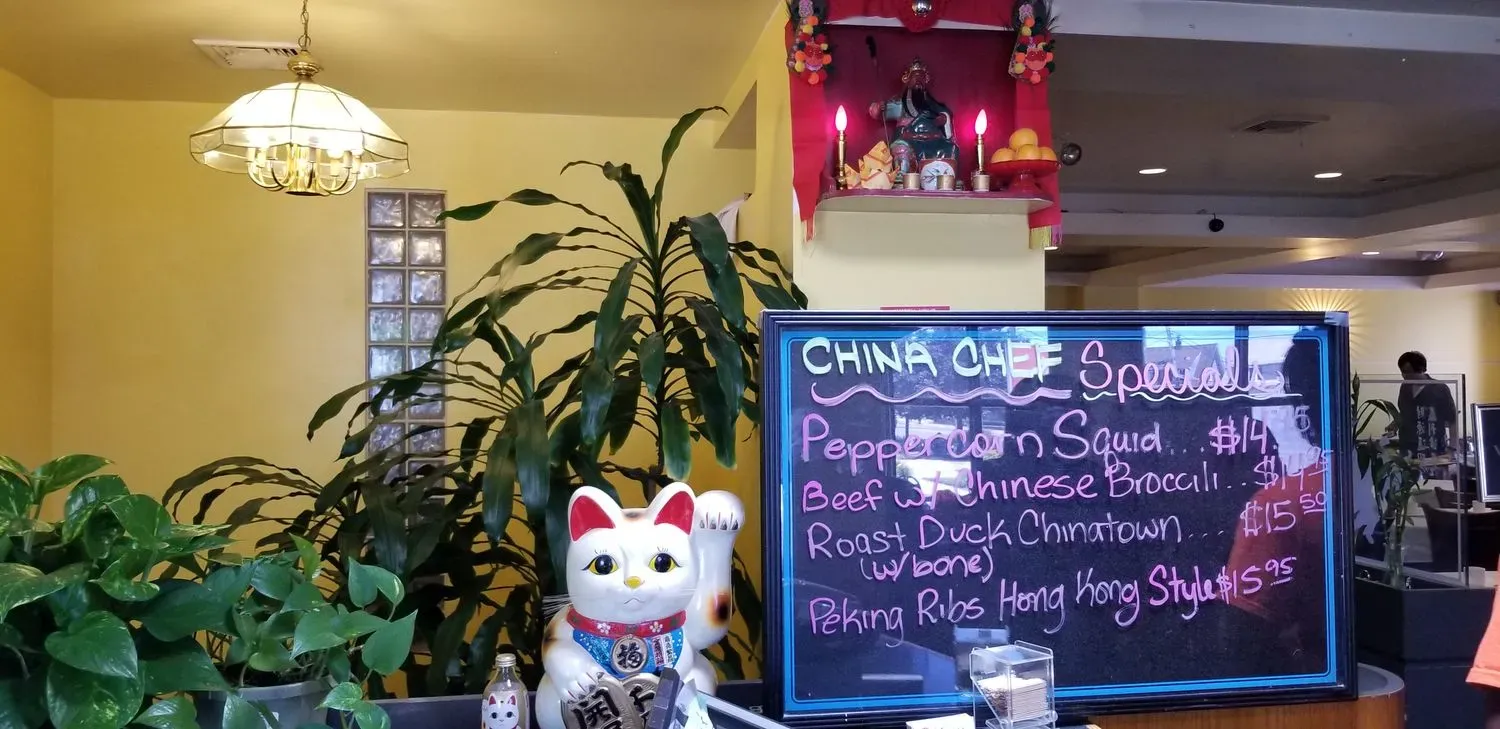 CHINA CHEF Specials
Peppercorn Squid...$14.
Beef w/ Chinese Broccili..$14.95
Roast Duck Chinatown....$15.50
(w/bone)
Peking Ribs Hong Kong Style $15.95
福